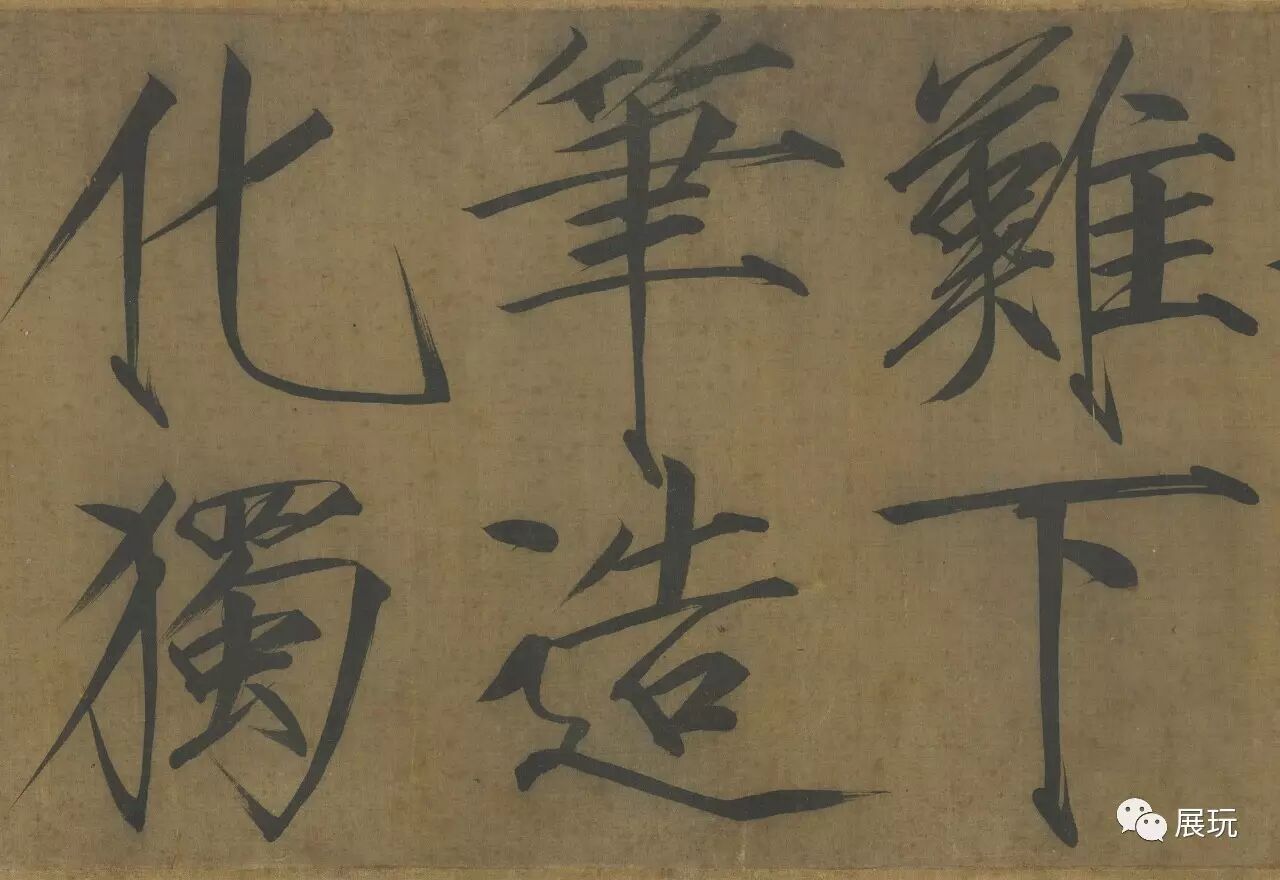 難下
筆造
化獨
展玩